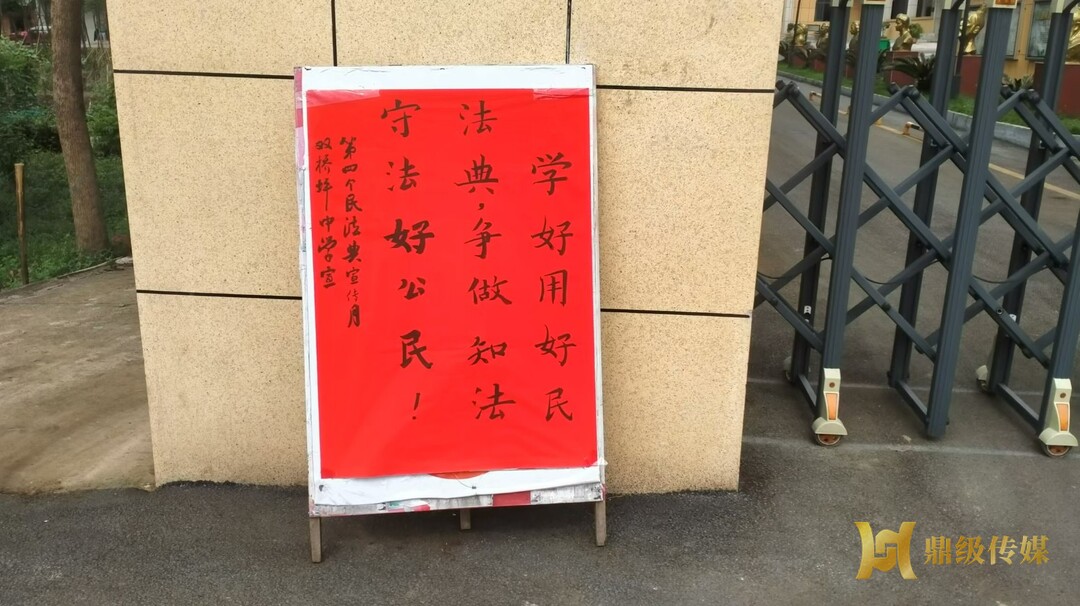 学好用好民
法典，争做知法
守法好公民！
第四个民法典宣传月
双桥坪中学宣
鼎级传媒